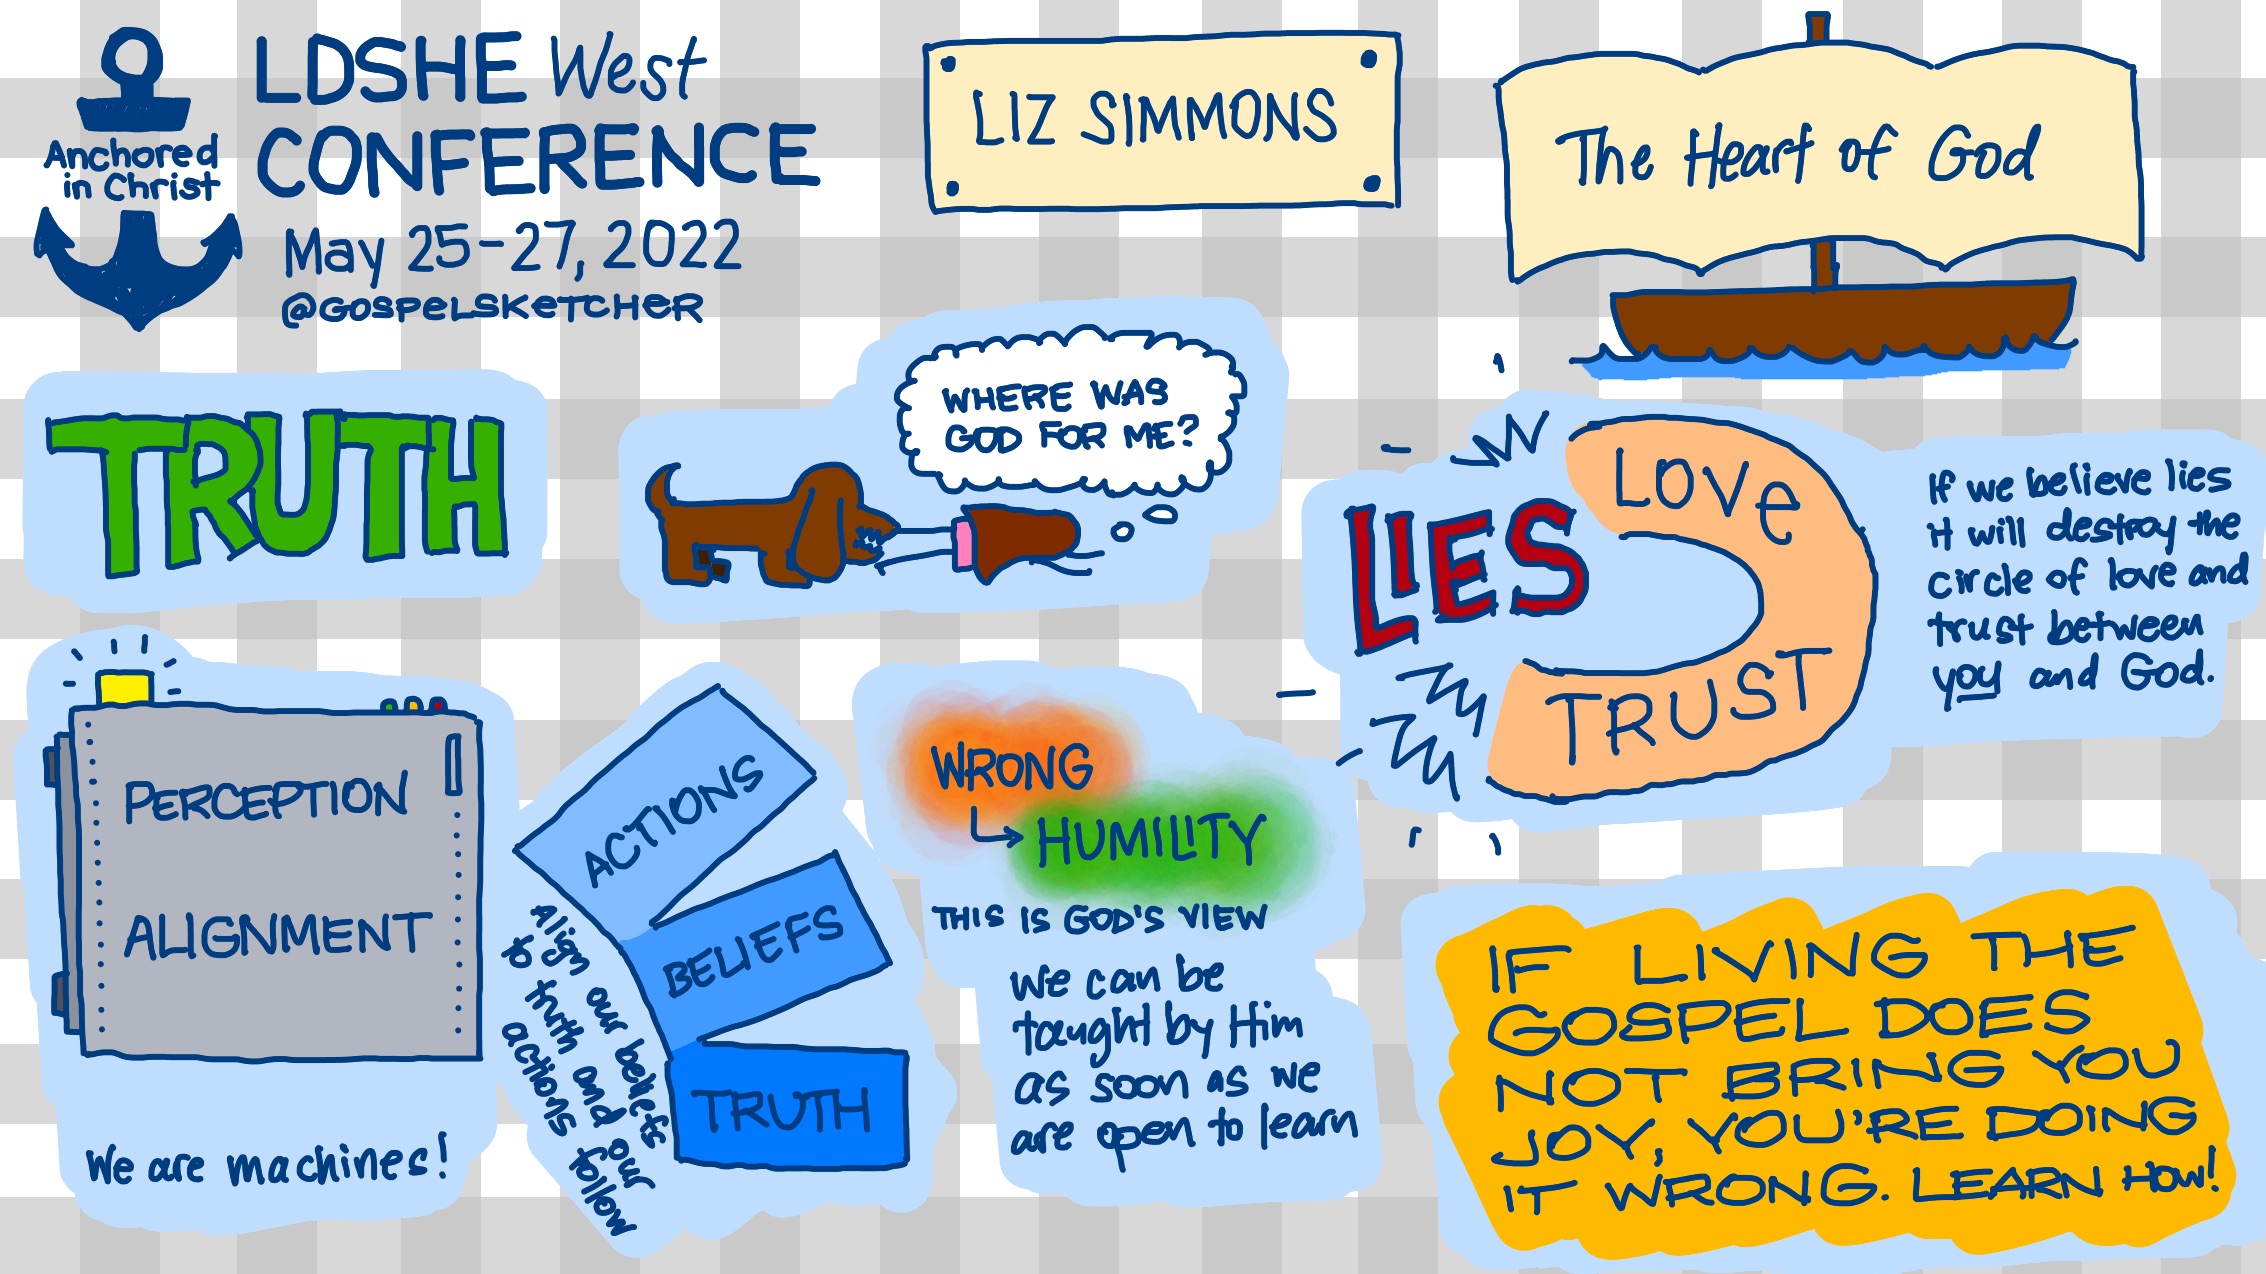 Anchored
in Christ
LDSHE West
CONFERENCE
May 25-27, 2022
@GOSPELSKETCHER
LIZ SIMMONS
The Heart of God
TRUTH
WHERE WAS
GOD FOR ME?
LIES
LOVe
TRUST
If we believe lies
it will destroy the
circle of love and
trust between
you and God.
PERCEPTION
ALIGNMENT
We are machines!
ACTIONS
BELIEFS
TRUTH
Align our beliefs
to truth and our
actions follow
WRONG
HUMILITY
THIS IS GOD'S VIEW
We can be
taught by Him
as soon as we
are open to learn
IF LIVING THE
GOSPEL DOES
NOT BRING YOU
JOY, YOU'RE DOING
IT WRONG. LEARN HOW!